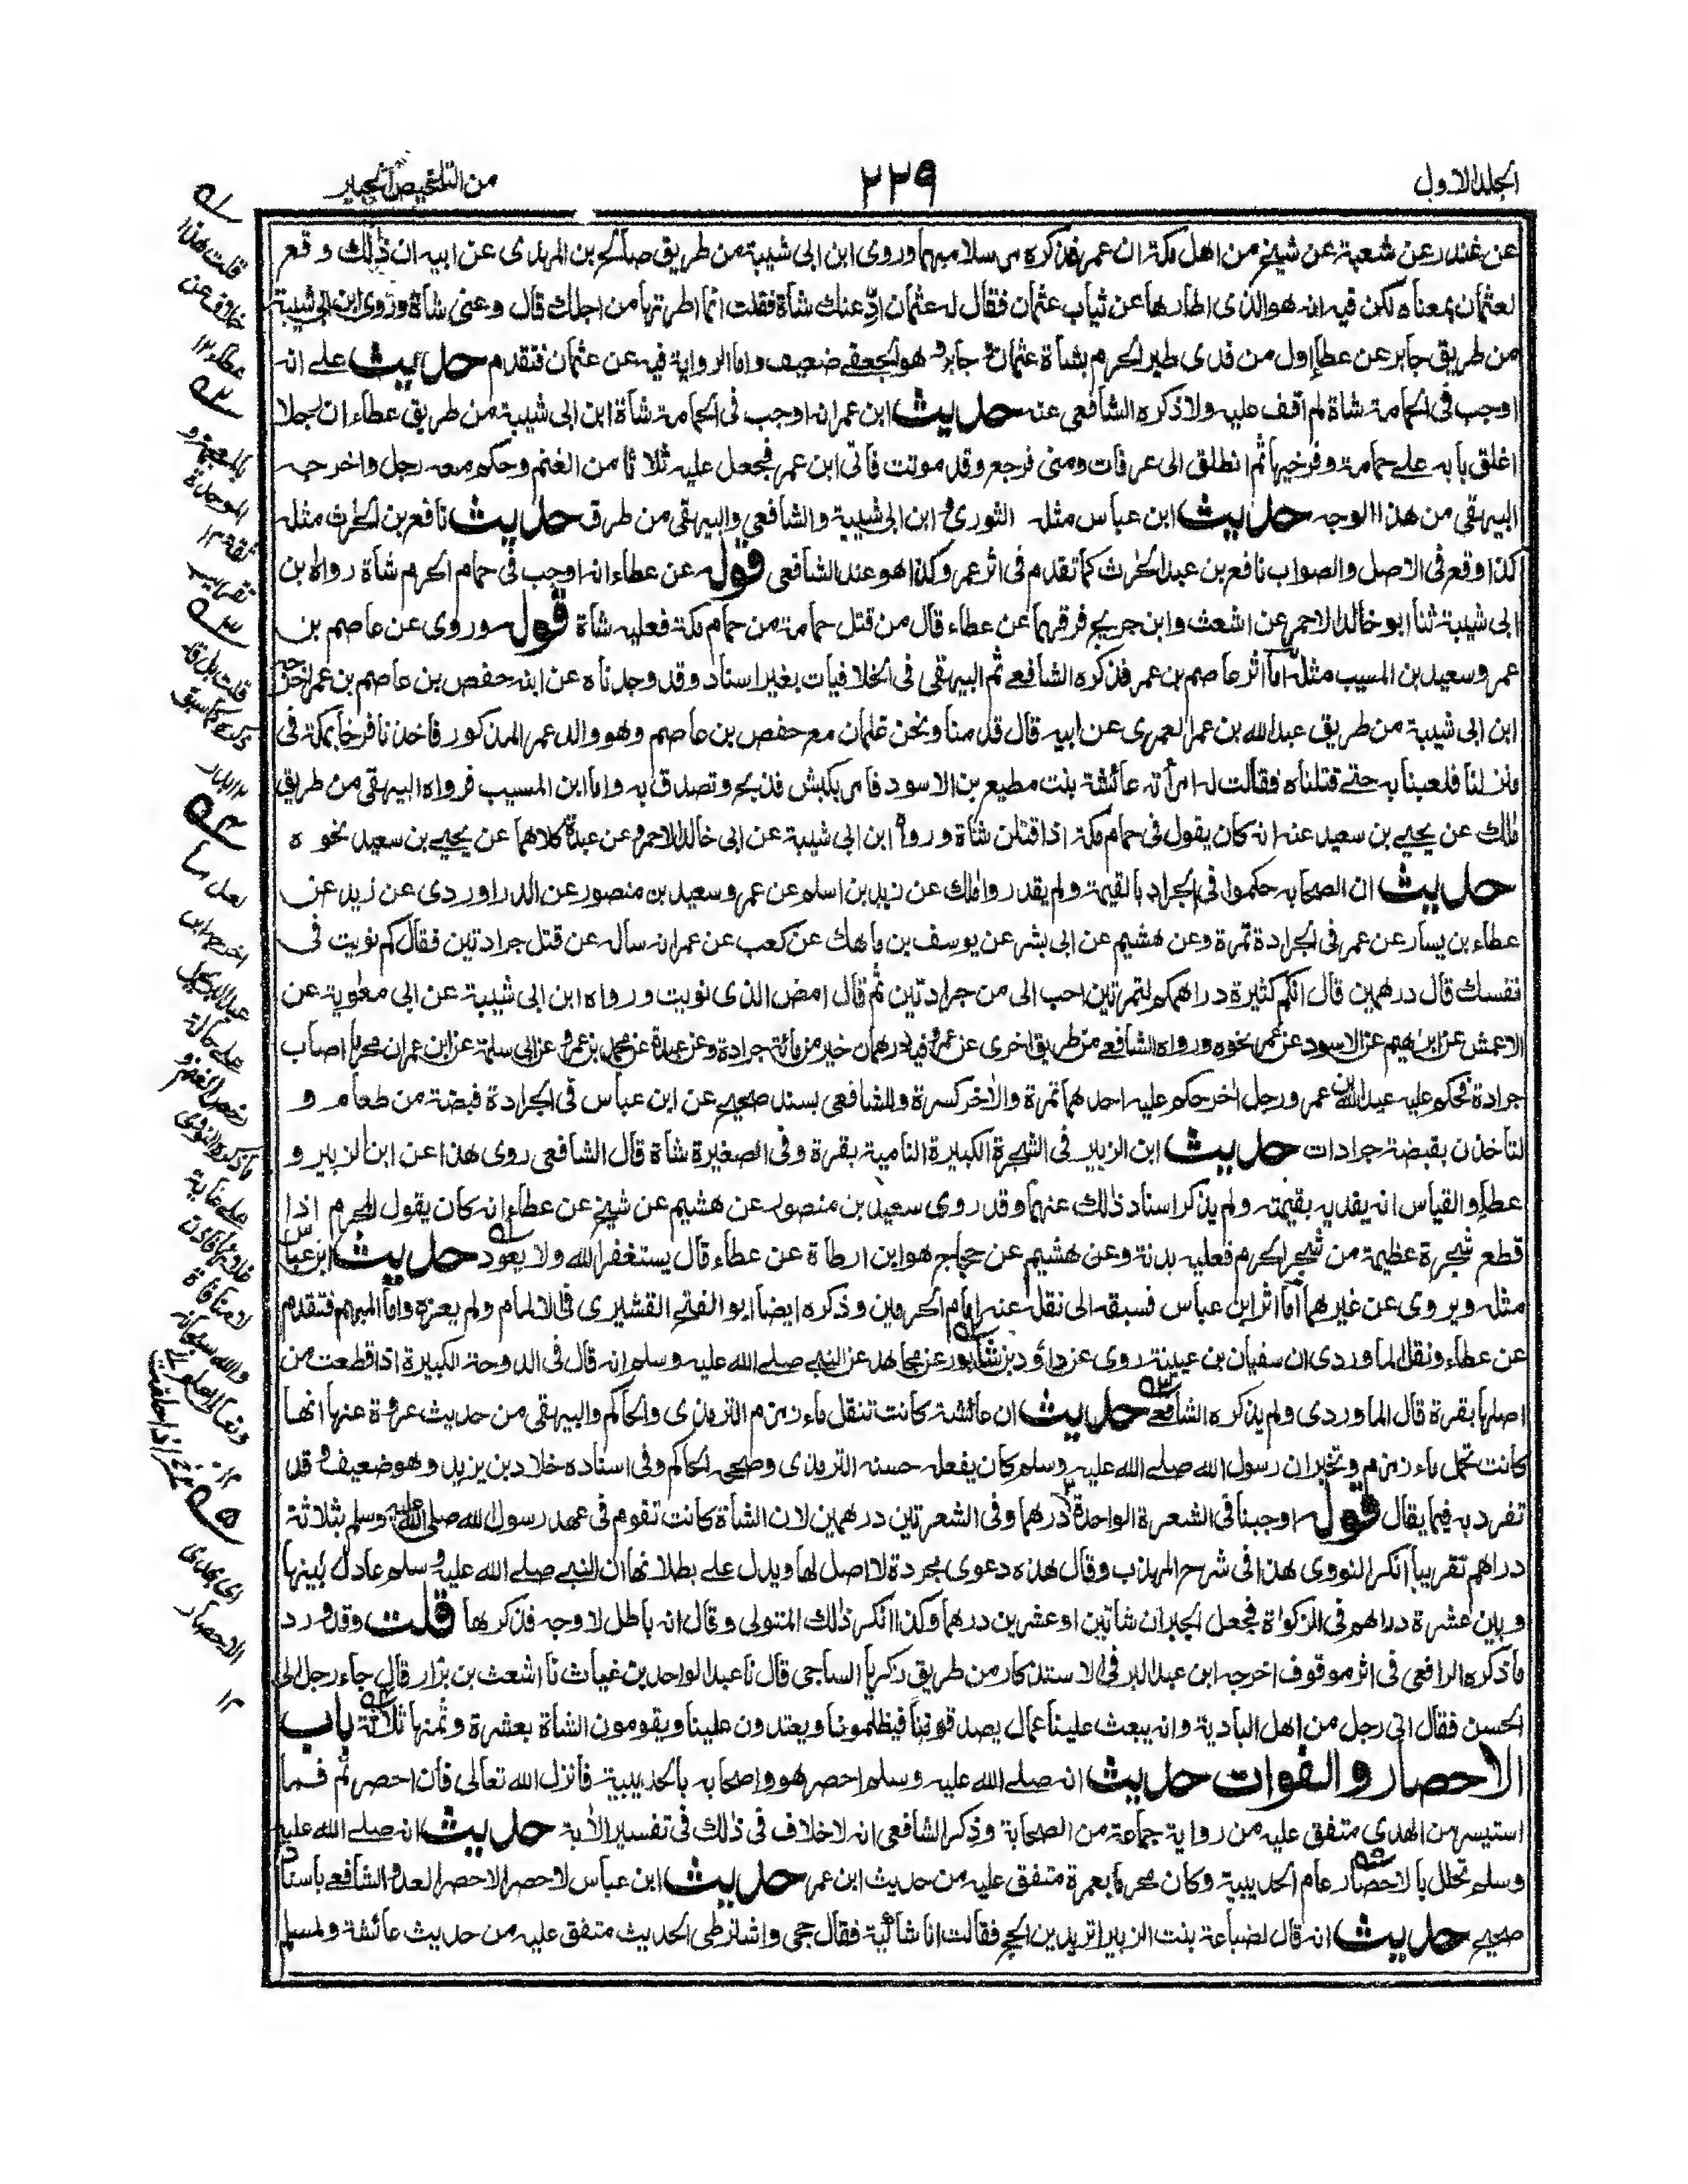 الجلد الاول
٢٢٩
من التلخيص الحبير
عن غندر عن شعبة عن شيخ من اهل مكة ان عمر فذكره مرسلا مبهما وروى ابن ابى شيبة من طريق صالح بن المهدى عن ابيه ان ذلك وقع
لعثمان بمعناه لكن فيه انه هو الذى اطارها عن ثياب عثمان فقال له عثمان ادّ عنك شاة فقلت انما اطرتها من اجلك قال وعنى شاة وروى ابن ابى شيبة
من طريق جابر عن عطاء اول من فدى طير الحرم بشاة عثمان جابر هو الجعفے ضعيف واما الرواية فيه عن عثمان فتقدم حديث علے انه
اوجب فى الحمامة شاة لم اقف عليه ولا ذكره الشافعى عنه حديث ابن عمر انه اوجب فى الحمامة شاة ابن ابى شيبة من طريق عطاء ان رجلا
اغلق بابه علے حمامة وفرخيها ثم انطلق الى عرفات ومنى فرجع وقد موتت فاتى ابن عمر فجعل عليه ثلاثا من الغنم وحكم معه رجل واخرجه
البيهقى من هذا الوجه حديث ابن عباس مثله الثورى و ابن ابى شيبة والشافعى والبيهقى من طرق حديث نافع بن الحرث مثله
كذا وقع فى الاصل والصواب نافع بن عبد الحرث كما تقدم فى اثر عمر وكذا هو عند الشافعى قوله عن عطاء انه اوجب فى حمام الحرم شاة رواه بن
ابى شيبة ثنا ابو خالد الاحمر عن اشعث وابن جريج فرقهما عن عطاء قال من قتل حمامة من حمام مكة فعليه شاة قوله وروى عن عاصم بن
عمر وسعيد بن المسيب مثله اما اثر عاصم بن عمر فذكره الشافعے ثم البيهقى فى الخلافيات بغير اسناد وقد وجدناه عن ابنه حفص بن عاصم بن عمر اخرجه
ابن ابى شيبة من طريق عبد الله بن عمر العمرى عن ابيه قال قدمنا ونحن غلمان مع حفص بن عاصم وهو والد عمر المذكور فاخذنا فرخا بمكة فى
منزلنا فلعبنا به حتے قتلناه فقالت له امرأته عائشة بنت مطيع بن الاسود فامر بكبش فذبح وتصدق به واما ابن المسيب فرواه البيهقى من طريق
مالك عن يحيے بن سعيد عنه انه كان يقول فى حمام مكة اذا قتلن شاة ورواه ابن ابى شيبة عن ابى خالد الاحمر وعن عبدة كلاهما عن يحيے بن سعيد نحوه
حديث ان الصحابه حكموا فى الجراد بالقيمة ولم يقدر وا مالك عن زيد بن اسلم عن عمر وسعيد بن منصور عن الدراوردى عن زيد عن
عطاء بن يسار عن عمر فى الجرادة تمرة وعن هشيم عن ابى بشر عن يوسف بن ماهك عن كعب عن عمر انه ساله عن قتل جرادتين فقال كم نويت فى
نفسك قال درهمين قال انكم كثيرة دراهمكم لتمرتين احب الى من جرادتين ثم قال امض الذى نويت ورواه ابن ابى شيبة عن ابى معوية عن
الاعمش عن ابراهيم عن الاسود عن عمر نحوه ورواه الشافعے من طريق اخرى عن عمر وفيه درهمان خير من مائة جرادة وعن عبدة عن محمد بن عمرو عن ابى سلمة عن ابن عمر ان محرما اصاب
جرادة فحكم عليه عبد الله بن عمر ورجل اخر حكم عليه احدهما تمرة والاخر كسرة وللشافعى بسند صحيح عن ابن عباس فى الجرادة قبضة من طعام و
لتأخذن بقبضة جرادات حديث ابن الزبير فى الشجرة الكبيرة النامية بقرة وفى الصغيرة شاة قال الشافعى روى هذا عن ابن الزبير و
عطاء والقياس انه يفديه بقيمته ولم يذكر اسناد ذلك عنهما وقد روى سعيد بن منصور عن هشيم عن شيخ عن عطاء انه كان يقول المحرم اذا
قطع شجرة عظيمة من شجر الحرم فعليه بدنة وعن هشيم عن حجاج هو ابن ارطاة عن عطاء قال يستغفر الله ولا يعود حديث ابن عباس
مثله ويروى عن غيرهما اما اثر ابن عباس فسبقه الى نقله عنه امام الحرمين وذكره ايضا ابو الفتح القشيرى فى الالمام ولم يعزه واما المبهم فتقدم
عن عطاء ونقل الماوردى ان سفيان بن عيينة روى عن داؤد بن شابور عن مجاهد عن النبے صلے الله عليه وسلم انه قال فى الدوحة الكبيرة اذا قطعت من
اصلها بقرة قال الماوردى ولم يذكره الشافعے حديث ان عائشة كانت تنقل ماء زمزم الترمذى والحاكم والبيهقى من حديث عروة عنها انها
كانت تحمل ماء زمزم وتخبر ان رسول الله صلے الله عليه وسلم كان يفعله حسنه الترمذى وصححه الحاكم وفى اسناده خلاد بن يزيد وهو ضعيف وقد
تفرد به فيما يقال قوله اوجبنا فى الشعرة الواحدة درهما وفى الشعرتين درهمين لان الشاة كانت تقوم فى عهد رسول الله صلى الله عليه وسلم بثلاثة
دراهم تقريبا انكر النووى هذا فى شرح المهذب وقال هذه دعوى مجردة لا اصل لها ويدل علے بطلانها ان النبے صلے الله عليه وسلم عادل بينها
وبين عشرة دراهم فى الزكوة فجعل الجبران شاتين او عشرين درهما وكذا انكر ذلك المتولى وقال انه باطل لا وجه فذكرها قلت وقد ورد
ما ذكره الرافعى فى اثر موقوف اخرجه ابن عبد البر فى الاستذكار من طريق زكريا الساجى قال نا عبد الواحد بن غياث نا اشعث بن بزار قال جاء رجل الى
الحسن فقال انى رجل من اهل البادية وانه يبعث علينا عمال يصدقوننا فيظلمونا ويعتدون علينا ويقومون الشاة بعشرة وثمنها ثلاثة باب
الاحصار والفوات حديث انه صلے الله عليه وسلم احصر هو واصحابه بالحديبية فانزل الله تعالى فان احصرتم فما
استيسر من الهدى متفق عليه من رواية جماعة من الصحابة وذكر الشافعى انه لا خلاف فى ذلك فى تفسير الاية حديث انه صلے الله عليه
وسلم تحلل بالاحصار عام الحديبية وكان محرما بعمرة متفق عليه من حديث ابن عمر حديث ابن عباس لا حصر الا حصر العدو الشافعے باسناد
صحيح حديث انه قال لضباعة بنت الزبير اتريدين الحج فقالت انا شاكية فقال حجى واشترطى الحديث متفق عليه من حديث عائشة ولمسلم
قلت هذا
خلاف عن
عطاء ١٢
بالمعجمة و
الموحدة
ثقة ١٢
تقريب
علے حالة
والله سبحانه
اى بهدى
الاحصار
١٢